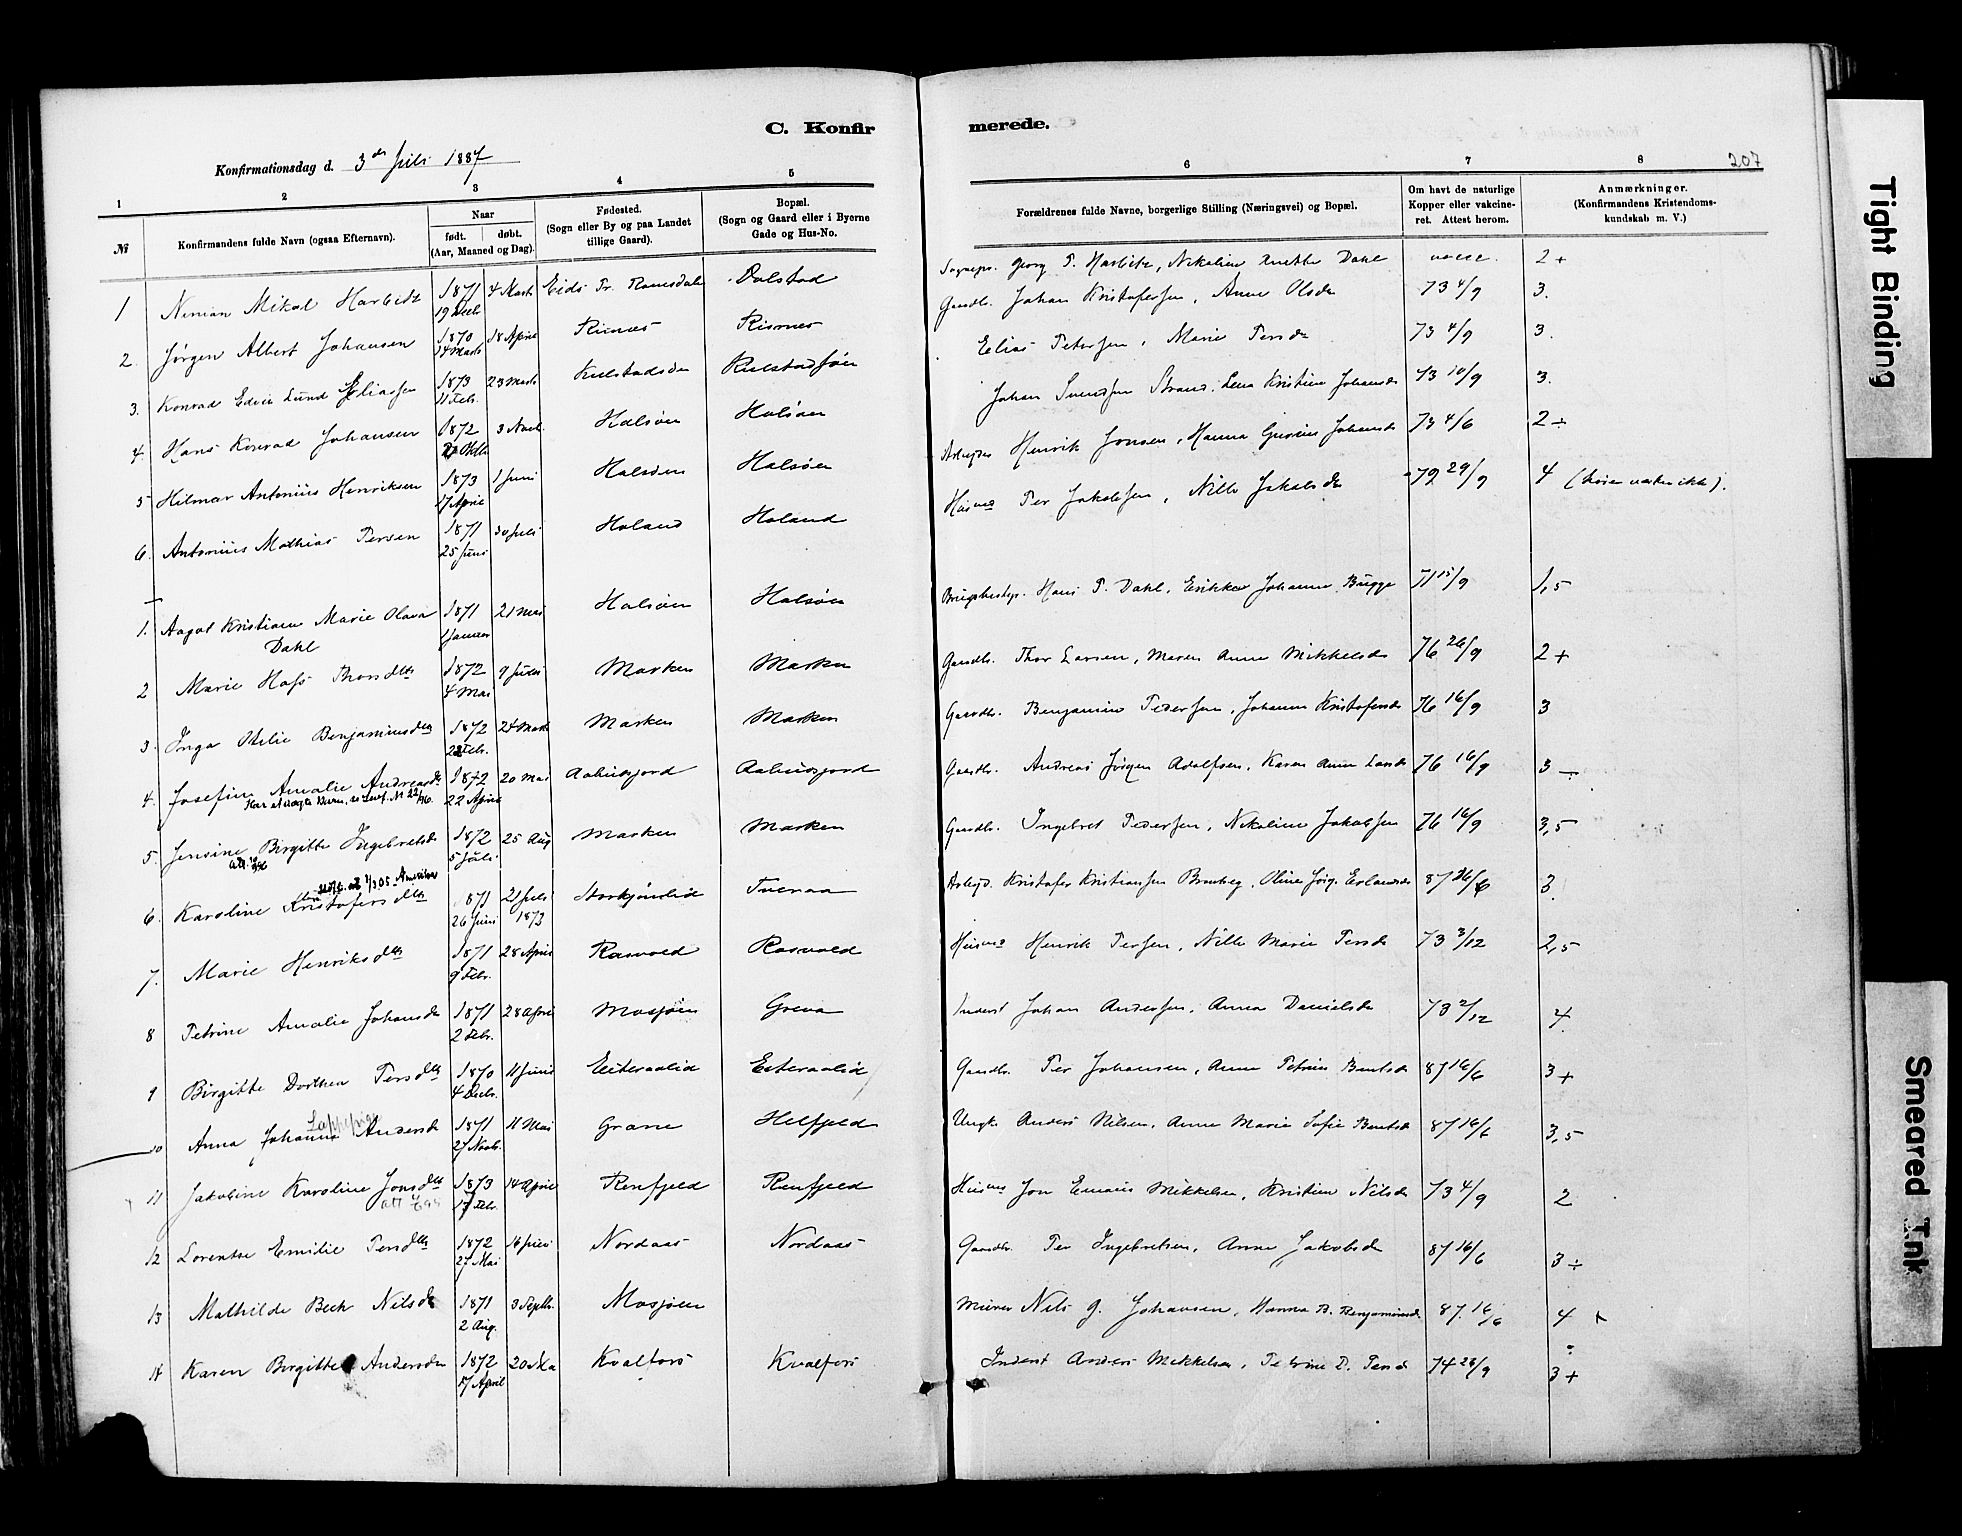 C. Konfir
merede.
207
Konfirmationsdag d. 3 die Juli 1887
1 2 3 4 5 6 7 8
№
Konfirmandens fulde Navn (ogsaa Efternavn).
Naar
født. døbt.
(Aar, Maaned og Dag).
Fødested.
(Sogn eller By og paa Landet
tillige Gaard).
Bopæl.
(Sogn og Gaard eller i Byerne
Gade og Hus-No.
Forældrenes fulde Navne, borgerlige Stilling (Næringsvei) og Bopæl.
Om havt de naturlige
Kopper eller vakcine-
ret. Attest herom.
Anmærkninger.
(Konfirmandens Kristendoms-
kundskab m. V.)
1 Ninian Mikal Harbitz 1871 19 Decb 4 Marts Eids Pr. Romsdalen Dolstad Sognepr. Georg P. Harbitz, Nikoline Anette Dahl vacc. 2+
2. Jørgen Albert Johansen 1870 14 Marts 18 April Risnes Risnes Gaardbr. Johan Kristofersen, Anne Olsdr 73 4/9 3.
3. Konrad Edvin Lund Eliassen 1873 11 Febr. 23 Marts Kulstadsøen Kulstadsjøen Elias Petersen, Marie Persdr 73 4/9 3.
4. Hans Konrad Johansen 1872 Oktb 3 Novb. Halsøen Halsøen Johan Svendsen Strand, Lena Kristine Johansdr 73 10/9 3.
5 Hilmar Antonius Henriksen 1873 17 April 1 Juni Halsøen Halsøen Arbeider Henrik Jonsen, Hanna Gurine Johansdr 73 4/6 2÷
6. Antonius Mathias Persen 1871 25 Juni 30 Juli Holand Holand Husmd Per Jakobsen, Nille Jakobsdr 79 29/9 4
1. Aagot Kristiane Marie Olava Dahl 1871 1 Januar 21 Mai Halsøen Halsøen Brugsbestyr. Hans P. Dahl, Erikka Johanne Bugge 71 15/9 1,5
2 Marie Hass Thorsdtr 1872 4 Mai 9 Juni Marken Marken Gaardbr. Thor Larsen, Maren Anne Mikkelsdr 76 26/9 2+
3. Inga Otelie Benjaminsdtr 1872 Febr. 24 Marts Marken Marken Gaardbr. Benjamin Pedersen, Johanne Kristofersdr 76 16/9 3
4. Josefine Amalie Andreasdr 1872 22 April 20 Mai Aakvigjord Aakvigjord Gaardbr. Andreas Jørgen Adolfsen, Karen Anne Larsdr 76 16/9 3÷
5. Jensine Birgitte Ingebretsdr 1872 5 Juli 25 Aug Marken Marken Gaardbr. Ingebret Pedersen, Nikoline Jakobsen 76 16/9 3,5
6. Karoline Kristofersdtr 1871 26 Juni 21 Juli 1873 Storkjønlid Tveraa Arbejd. Kristofer Kristiansen Bramberg, Oline Jørg. Erlandsdr 87 26/6 3.
7. Marie Henriksdtr 1871 9 Febr. 28 April Rosvold Rosvold Husmd Henrik Persen, Nille Marie Persdr 73 3/12 2,5
8 Petrine Amalie Johansdr 1871 2 Febr. 28 April Mosjøen Greva Inderst Johan Andersen, Anna Danielsdr 73 2/12 4.
9 Birgitte Dorthea Persdtr 1870 4 Decbr. 11 Juni Eiteraalid Eiteraalid Gaardbr. Per Johansen, Anne Petrine Bentsdr 87 16/6 3+
10 Anna Johanna Andersdr Lappepige 1871 27 Novb. 11 Mai Grane Helfjeld Ungk. Anders Nilsen, Anne Marie Sofie Bentsdr 87 16/6 3,5
11 Jakobine Karoline Jonsdtr 1873 17 Febr. 14 April Renfjeld Renfjeld Husmd Jon Emaus Mikkelsen, Kristine Nilsdr 73 4/9 2
12 Lorentse Emilie Persdtr 1872 27 Mai 16 Juni Nordaas Nordaas Gaardbr. Per Ingebretsen, Anne Jakobsdr 87 16/6 3÷
13 Mathilde Bech Nilsdr 1871 2 Aug. 3 Septbr. Mosjøen Murer Nils G. Johansen, Hanna B. Benjaminsdr 87. 16/6 4 +
14 Karen Birgitte Andersdr 1872 17 April 20 Mai Kvalfors Kvalfors Inderst Anders Mikkelsen, Petrine D. Persdr 74 28/9 3+
Tight Binding
Smeared Ink